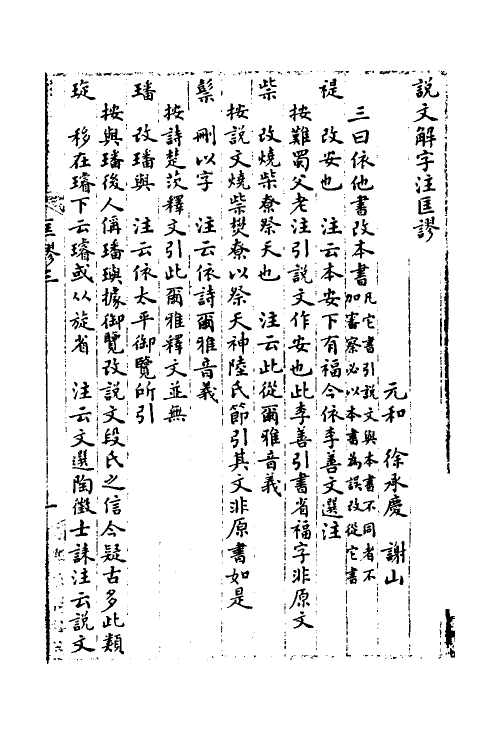 說文解字注匡謬
元和 徐承慶 謝山
三曰依他書改本書凡它書引説文與本書不同者不加審察必以本書為誤改從它書
禔 改安也 注云本安下有福今依李善文選注
按難蜀父老注引説文作安也此李善引書省福字非原文
柴 改燒柴尞祭天也 注云此從爾雅音義
按説文燒柴焚尞以祭天神陸氏節引其文非原書如是
禜 刪以字 注云依詩爾雅音義
按詩楚茨釋文引此爾雅釋文並無
璠 改璠與 注云依太平御覽所引
按與璠後人偁璠璵據御覽改説文段氏之信今疑古多此類
琁 移在璿下云璿或从旋省 注云文選陶徵士誄注云説文
匡謬三
一